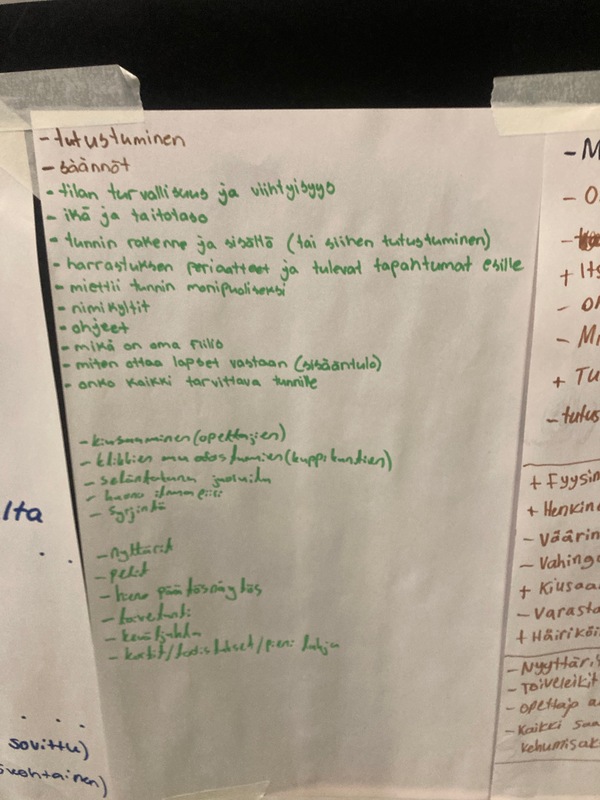 -tutustuminen
-säännöt
-tilan turvallisuus ja viihtyisyys
-ikä ja taitotaso
-tunnin rakenne ja sisältö (tai siihen tutustuminen)
-harrastuksen periaatteet ja tulevat tapahtumat esille
-miettii tunnin monipuoliseksi
-nimikyltit
-ohjeet
-mikä on oma fiilis
-miten ottaa lapset vastaan (sisääntulo)
-onko kaikki tarvittava tunnille
-kiusaaminen (opettajien)
-klikkien muodostumien (kuppikuntien)
-seläntakana juoruilu
-huono ilmapiiri
-syrjintä
-nyyttärit
-pelit
-hieno päätösnäytös
-toivetunti
-kevätjuhla
-kortit/todistukset/pieni lahja
lta
sovittu)
kohtainen)
-M
-O
+ Its
-M
+ Tu
-tutus
+ Fyysin
+ Henkin
- Väärin
- Vahing
+ Kiusaa
- Varasta
+ Häiriköi
-Nyyttäri
-Toiveleikit
-opettaja a
-Kaikki saa
kehumisak